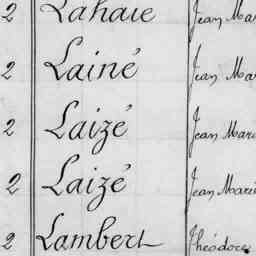 2 Lahaie Jean Mar
2 Lainé Jean Mar
2 Laizé Jean Mari
2 Laizé Jean Mari
2 Lambert Théodore